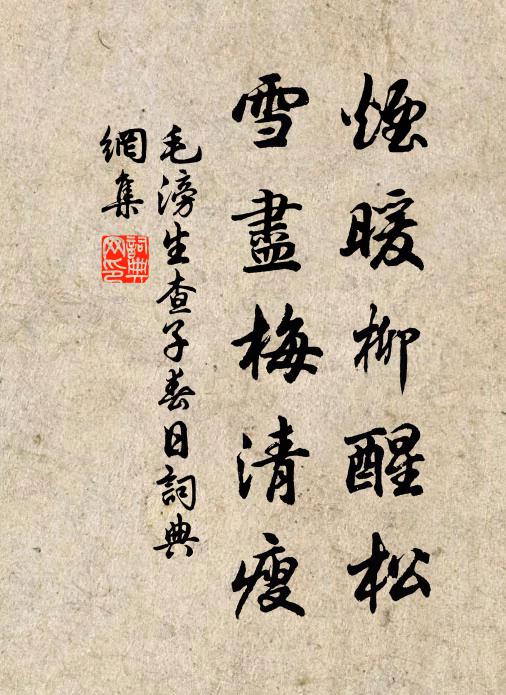 煙暖柳醒松
雪盡梅清瘦
毛滂生查子春日詞典
網集
詞典
网印